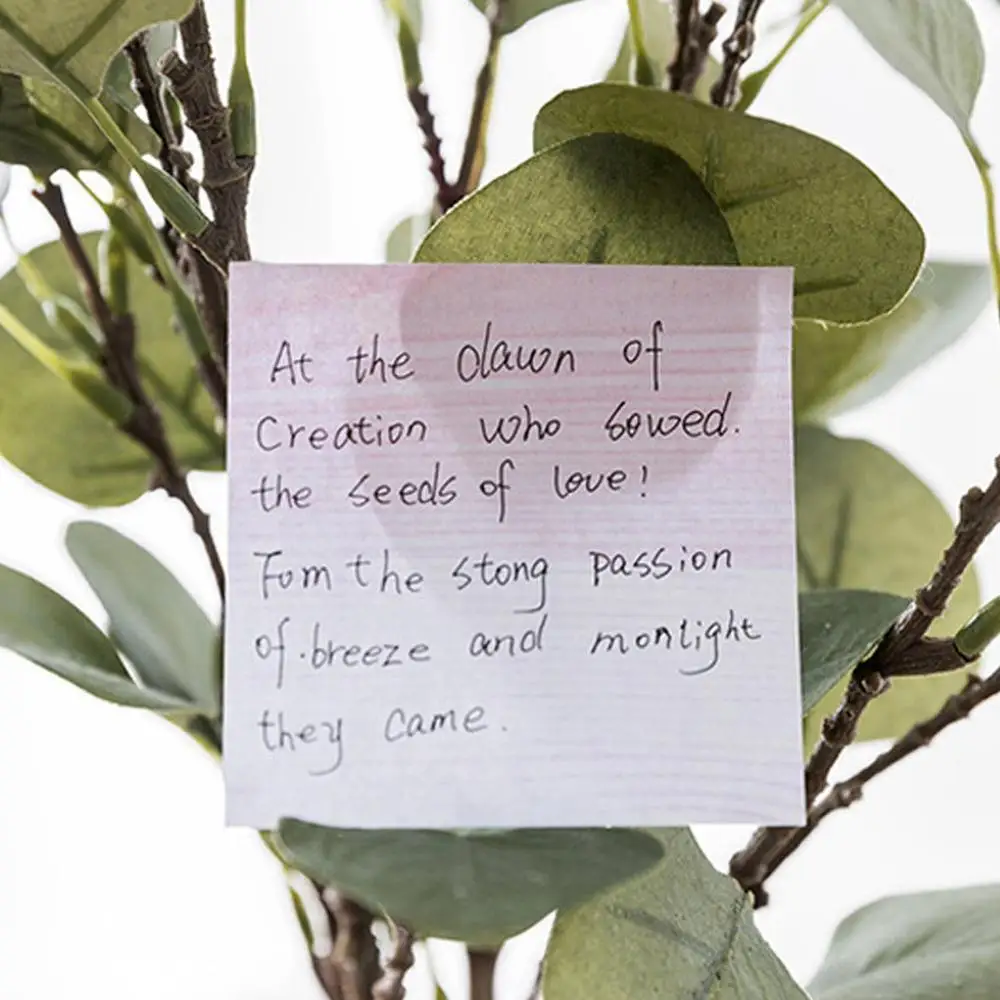 At the dawn of
Creation who sowed.
the seeds of love!
Fom the stong passion
of.breeze and monlight
they came.